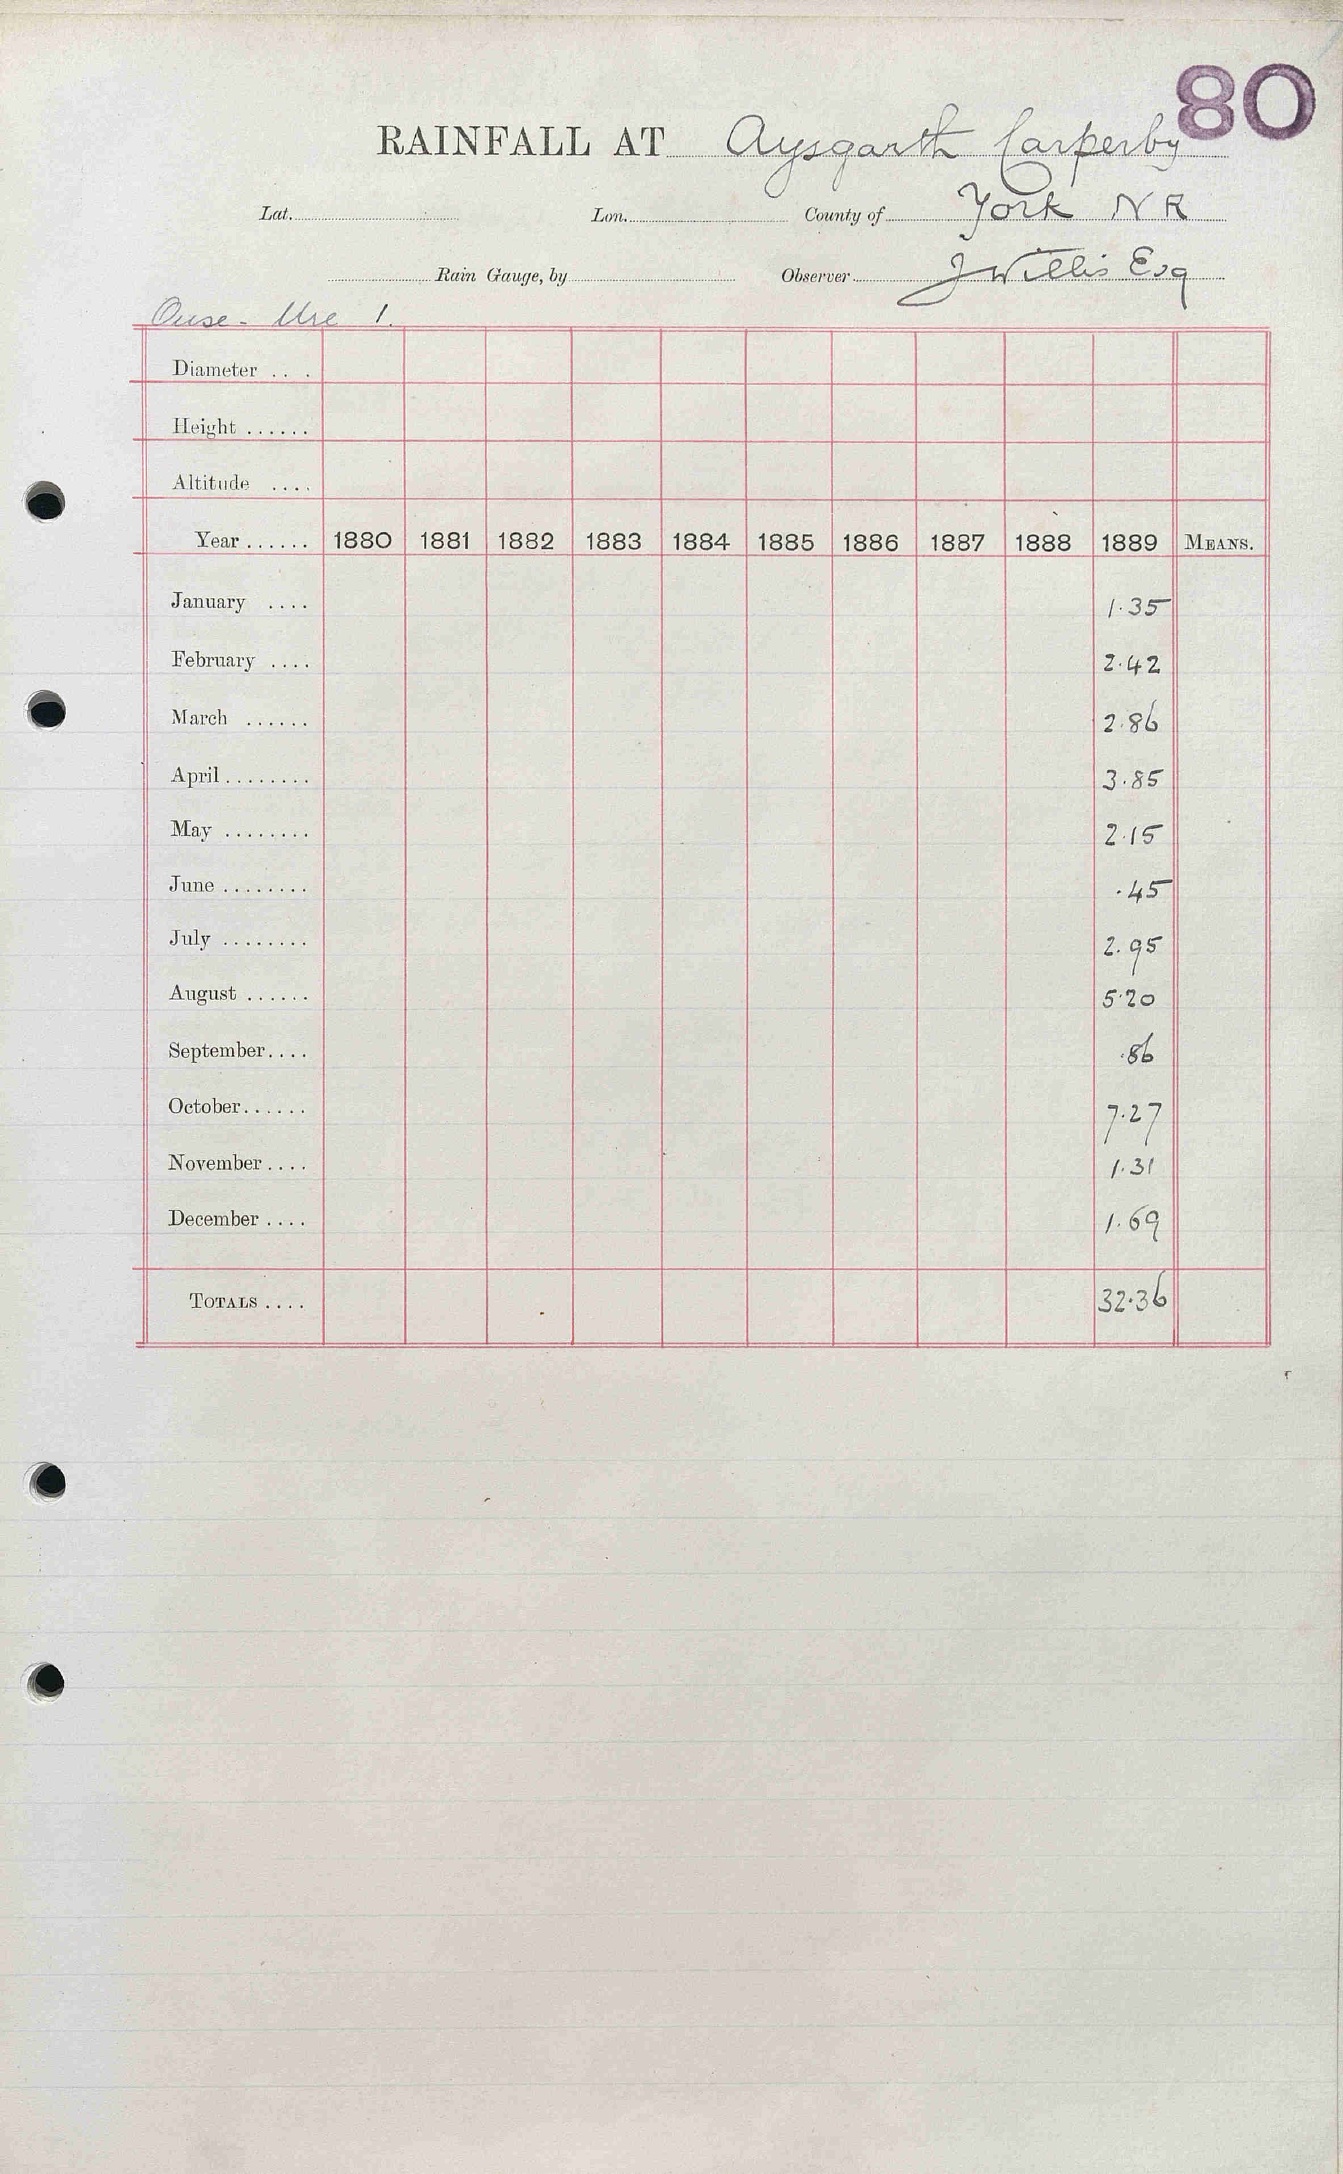 80
RAINFALL AT Aysgarth Carperby
Lat. Lon. County of York N R
Rain Gauge, by Observer J Willis Esq
Ouse - Ure 1.
Diameter
Height
Altitude
Year 1880 1881 1882 1883 1884 1885 1886 1887 1888 1889 MEANS.
January 1.35
February 2.42
March 2.86
April 3.85
May 2.15
June .45
July 2.95
August 5.20
September .86
October 7.27
November 1.31
December 1.69
TOTALS 32.36